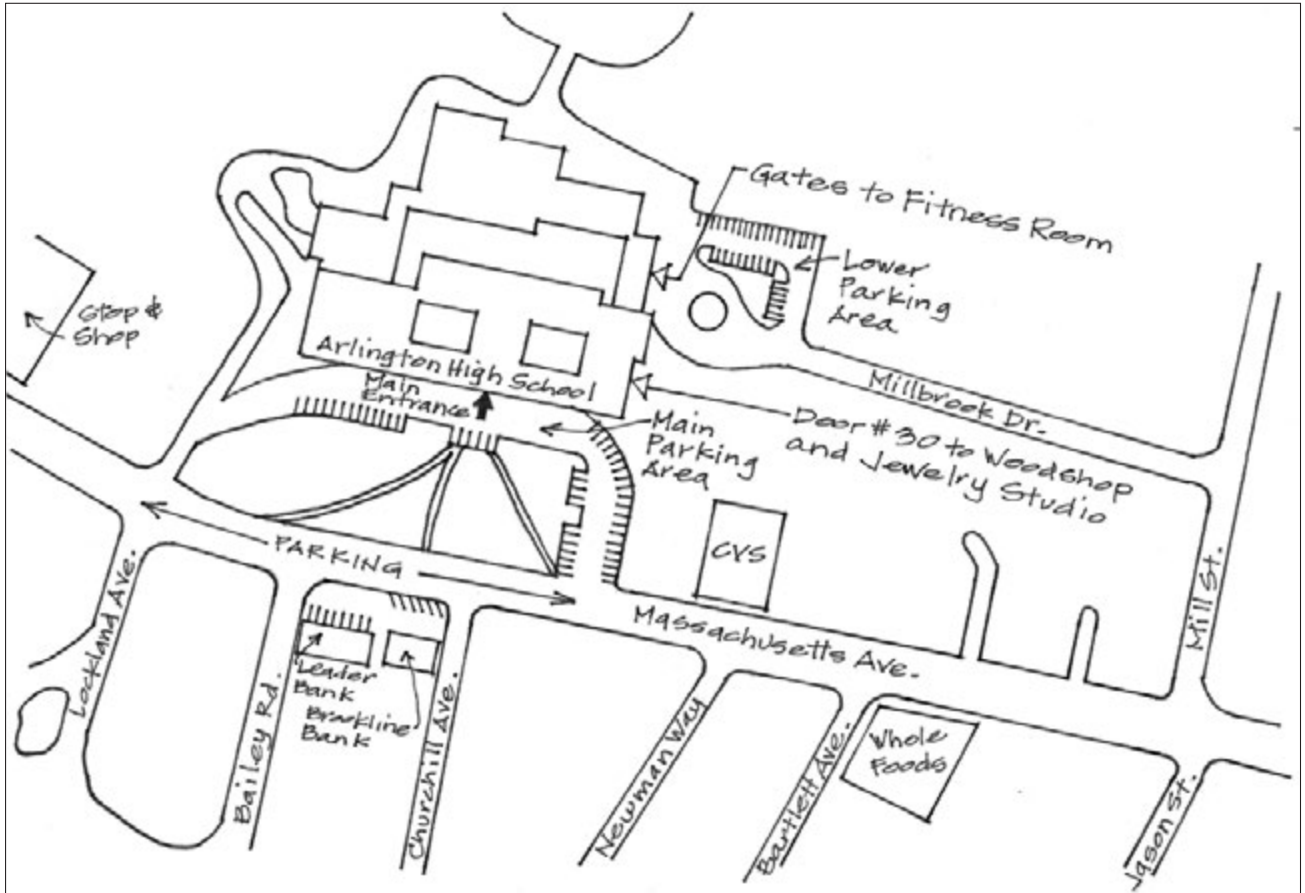 Gates to Fitness Room
Lower
Parking
Area
Stop &
Shop
Arlington High School
Main
Entrance
Millbrook Dr.
Main
Parking
Area
Door #30 to Woodshop
and Jewelry Studio
CVS
PARKING
Massachusetts Ave.
Mill St.
Lockland Ave.
Bailey Rd.
Leader
Bank
Brookline
Bank
Churchill Ave.
Newman Way
Bartlett Ave.
Whole
Foods
Jason St.